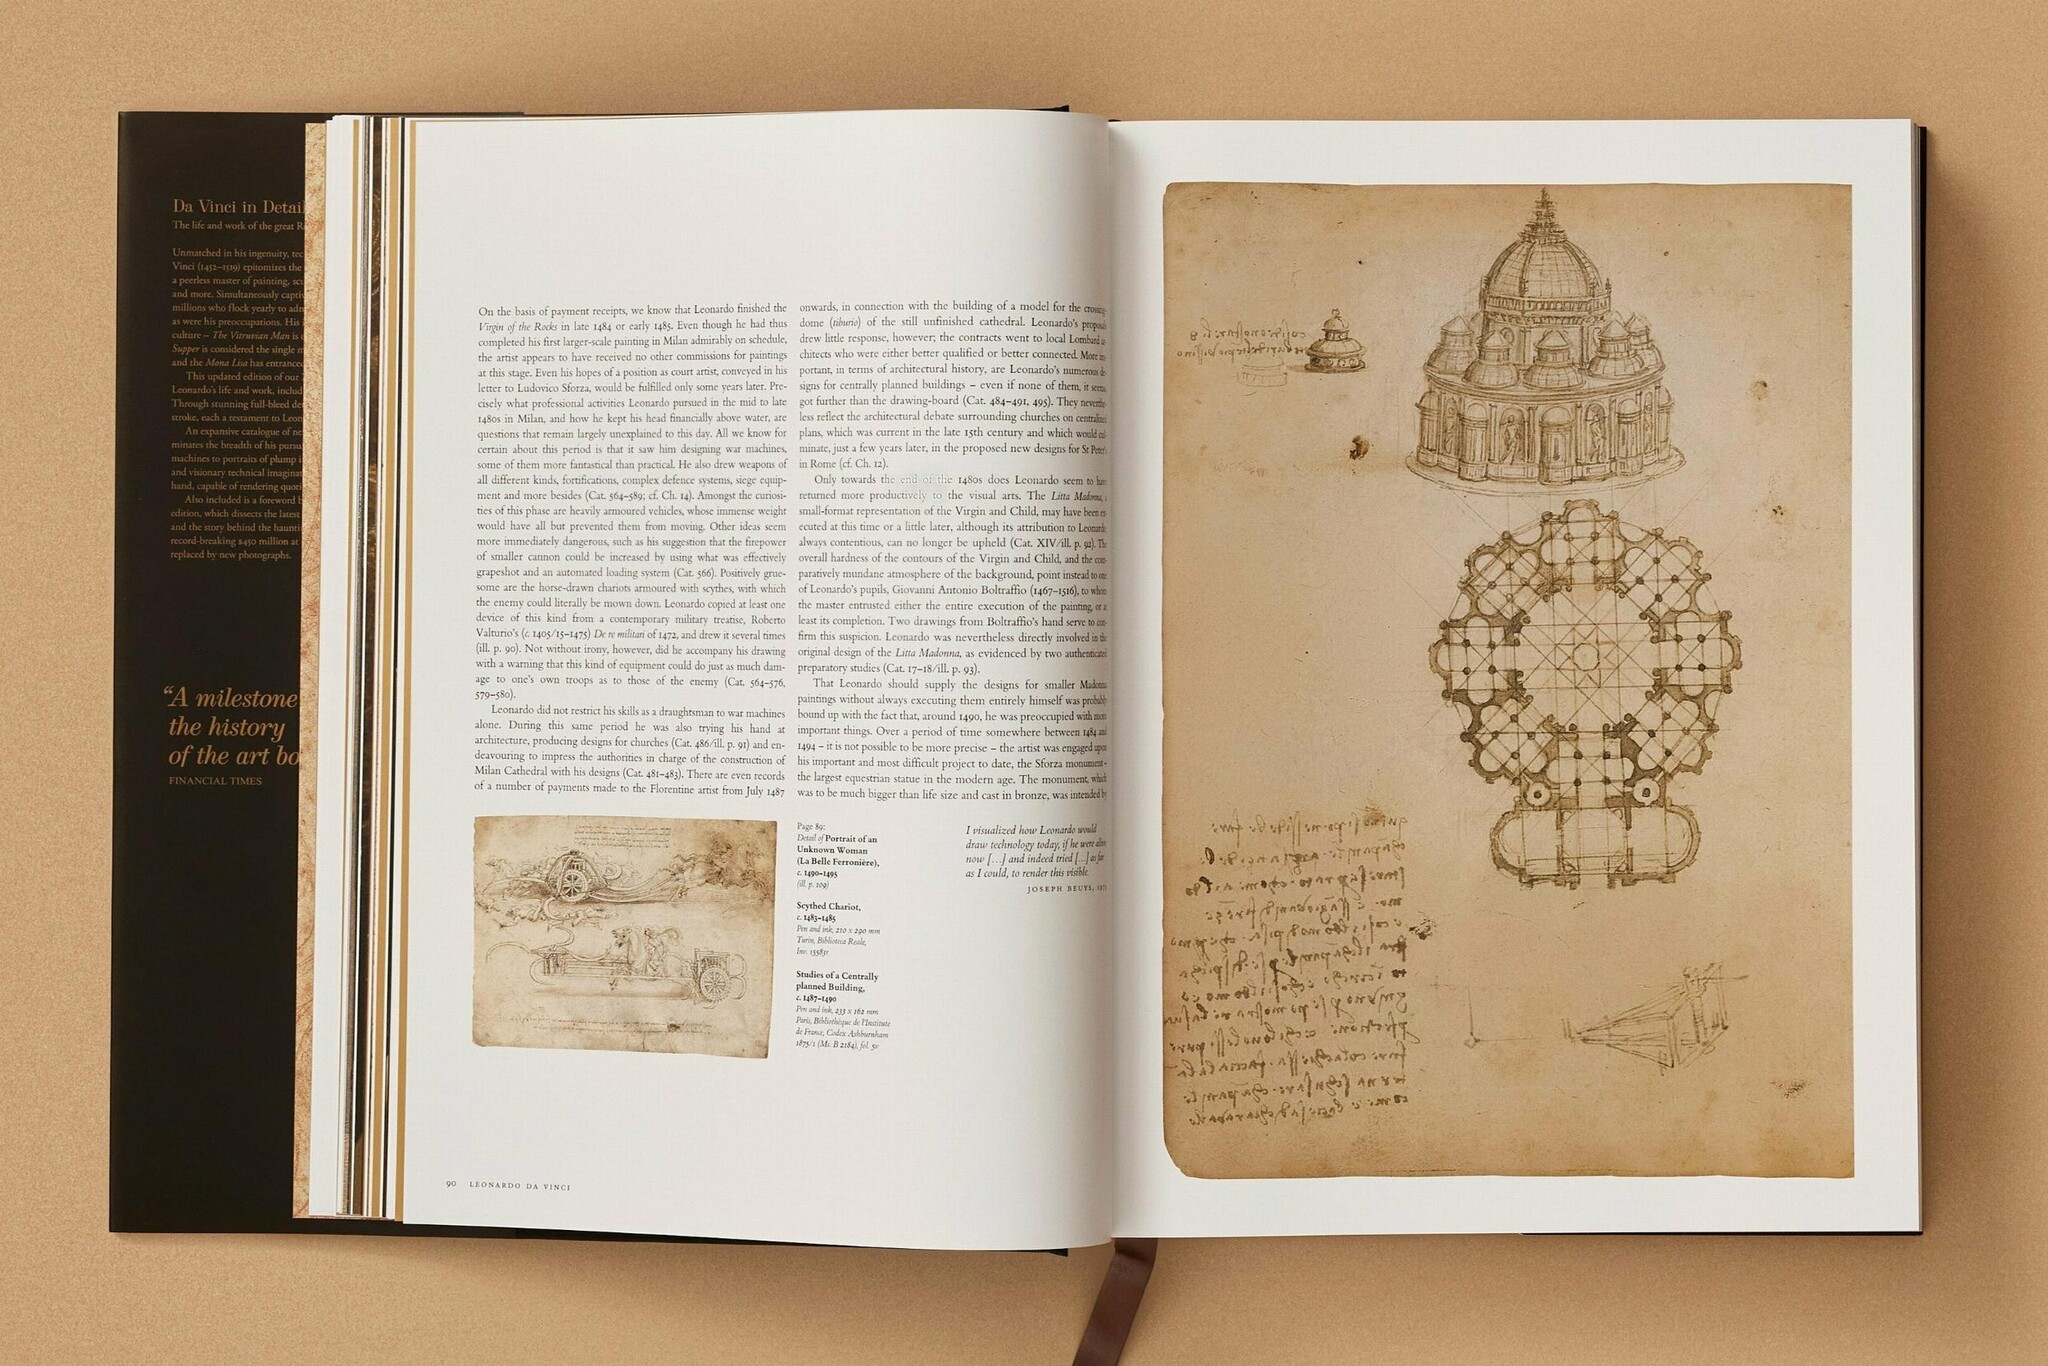 Da Vinci in Detail
The life and work of the great R
Unmatched in his ingenuity, tec
Vinci (1452–1519) epitomizes the
a peerless master of painting, scu
and more. Simultaneously captiv
millions who flock yearly to adm
as were his preoccupations. His
culture – The Vitruvian Man is
Supper is considered the single m
and the Mona Lisa has entranced
This updated edition of our
Leonardo's life and work, includ
Through stunning full-bleed de
stroke, each a testament to Leon
An expansive catalogue of ne
minates the breadth of his pursu
machines to portraits of plump i
and visionary technical imaginat
hand, capable of rendering quoti
Also included is a foreword b
edition, which dissects the latest
and the story behind the haunti
record-breaking $450 million at
replaced by new photographs.
“A milestone
the history
of the art bo
FINANCIAL TIMES
On the basis of payment receipts, we know that Leonardo finished the
Virgin of the Rocks in late 1484 or early 1485. Even though he had thus
completed his first larger-scale painting in Milan admirably on schedule,
the artist appears to have received no other commissions for paintings
at this stage. Even his hopes of a position as court artist, conveyed in his
letter to Ludovico Sforza, would be fulfilled only some years later. Pre-
cisely what professional activities Leonardo pursued in the mid to late
1480s in Milan, and how he kept his head financially above water, are
questions that remain largely unexplained to this day. All we know for
certain about this period is that it saw him designing war machines,
some of them more fantastical than practical. He also drew weapons of
all different kinds, fortifications, complex defence systems, siege equip-
ment and more besides (Cat. 564–589; cf. Ch. 14). Amongst the curiosi-
ties of this phase are heavily armoured vehicles, whose immense weight
would have all but prevented them from moving. Other ideas seem
more immediately dangerous, such as his suggestion that the firepower
of smaller cannon could be increased by using what was effectively
grapeshot and an automated loading system (Cat. 566). Positively grue-
some are the horse-drawn chariots armoured with scythes, with which
the enemy could literally be mown down. Leonardo copied at least one
device of this kind from a contemporary military treatise, Roberto
Valturio's (c. 1405/15–1475) De re militari of 1472, and drew it several times
(ill. p. 90). Not without irony, however, did he accompany his drawing
with a warning that this kind of equipment could do just as much dam-
age to one's own troops as to those of the enemy (Cat. 564–576,
579–580).
Leonardo did not restrict his skills as a draughtsman to war machines
alone. During this same period he was also trying his hand at
architecture, producing designs for churches (Cat. 486/ill. p. 91) and en-
deavouring to impress the authorities in charge of the construction of
Milan Cathedral with his designs (Cat. 481–483). There are even records
of a number of payments made to the Florentine artist from July 1487
onwards, in connection with the building of a model for the crossing
dome (tiburio) of the still unfinished cathedral. Leonardo's proposals
drew little response, however; the contracts went to local Lombard ar
chitects who were either better qualified or better connected. More im
portant, in terms of architectural history, are Leonardo's numerous de
signs for centrally planned buildings – even if none of them, it seems,
got further than the drawing-board (Cat. 484–491, 495). They neverthe-
less reflect the architectural debate surrounding churches on centralized
plans, which was current in the late 15th century and which would cul
minate, just a few years later, in the proposed new designs for St Peter's
in Rome (cf. Ch. 12).
Only towards the end of the 1480s does Leonardo seem to have
returned more productively to the visual arts. The Litta Madonna, a
small-format representation of the Virgin and Child, may have been ex
ecuted at this time or a little later, although its attribution to Leonardo,
always contentious, can no longer be upheld (Cat. XIV/ill. p. 92). The
overall hardness of the contours of the Virgin and Child, and the com-
paratively mundane atmosphere of the background, point instead to one
of Leonardo's pupils, Giovanni Antonio Boltraffio (1467–1516), to whom
the master entrusted either the entire execution of the painting, or at
least its completion. Two drawings from Boltraffio's hand serve to con-
firm this suspicion. Leonardo was nevertheless directly involved in the
original design of the Litta Madonna, as evidenced by two authenticated
preparatory studies (Cat. 17–18/ill. p. 93).
That Leonardo should supply the designs for smaller Madonna
paintings without always executing them entirely himself was probably
bound up with the fact that, around 1490, he was preoccupied with more
important things. Over a period of time somewhere between 1484 and
1494 – it is not possible to be more precise – the artist was engaged upon
his important and most difficult project to date, the Sforza monument –
the largest equestrian statue in the modern age. The monument, which
was to be much bigger than life size and cast in bronze, was intended by
Page 89:
Detail of Portrait of an
Unknown Woman
(La Belle Ferronière),
c. 1490–1495
(ill. p. 109)
Scythed Chariot,
c. 1483–1485
Pen and ink, 210 x 290 mm
Turin, Biblioteca Reale,
Inv. 15583r
Studies of a Centrally
planned Building,
c. 1487–1490
Pen and ink, 233 x 162 mm
Paris, Bibliothèque de l'Institute
de France, Codex Ashburnham
1875/1 (Ms. B 2184), fol. 5v
I visualized how Leonardo would
draw technology today, if he were alive
now […] and indeed tried […] as far
as I could, to render this visible.
JOSEPH BEUYS,
90 LEONARDO DA VINCI